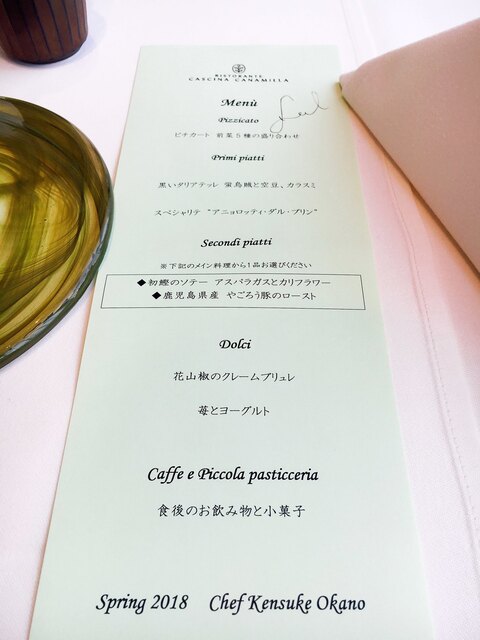 RISTORANTE
CASCINA CANAMILLA
Menù
Pizzicato
ピチカート 前菜５種の盛り合わせ
Primi piatti
黒いタリアテッレ 蛍烏賊と空豆、カラスミ
スペシャリテ "アニョロッティ・ダル・プリン"
Secondi piatti
※下記のメイン料理から1品お選びください
◆初鰹のソテー アスパラガスとカリフラワー
◆鹿児島県産 やごろう豚のロースト
Dolci
花山椒のクレームブリュレ
苺とヨーグルト
Caffe e Piccola pasticceria
食後のお飲み物と小菓子
Spring 2018 Chef Kensuke Okano